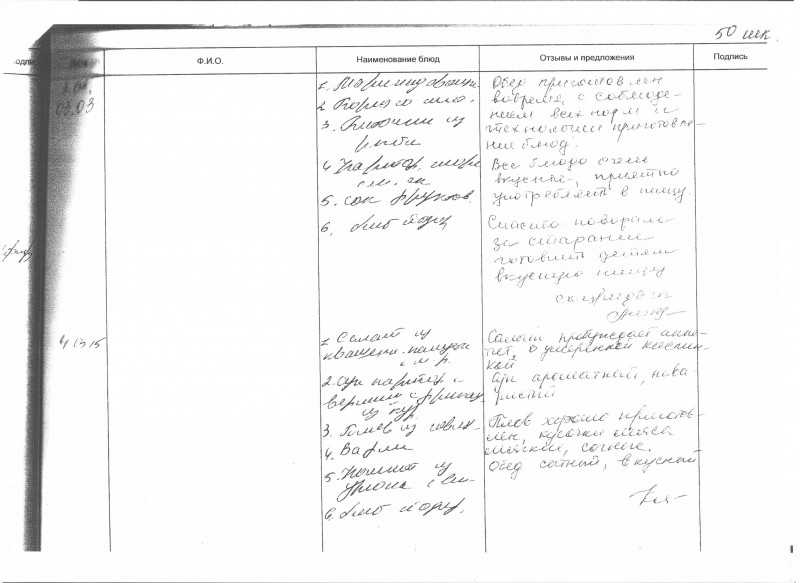 50 шк.
Ф.И.О.
Наименование блюд
Отзывы и предложения
Подпись
03.03
1.
2.
3. из
рыбы
4. Картоф. пюре
5. сок фруктов.
6. хлеб йодир
Обед приготовлен
вовремя, с соблюде-
нием всех норм и
технологии приготовле-
ния блюд.
Все блюда очень
вкусные, приятно
употреблять в пищу.
Спасибо поварам
за старания
готовить детям
вкусную пищу
1. Салат из
квашени. капусты
с м.р.
2. Суп картоф. с
вермиш с фрикад
из кур.
3. Плов из говяд.
4. Вафли
5. Компот из
6. хлеб йодир.
Салат пробуждает аппе-
тит, с умеренной кислин-
кой
Суп ароматный, нава-
ристый
Плов хорошо приготов-
лен, кусочки мяса
мягкие, сочные.
Обед сытный, вкусный